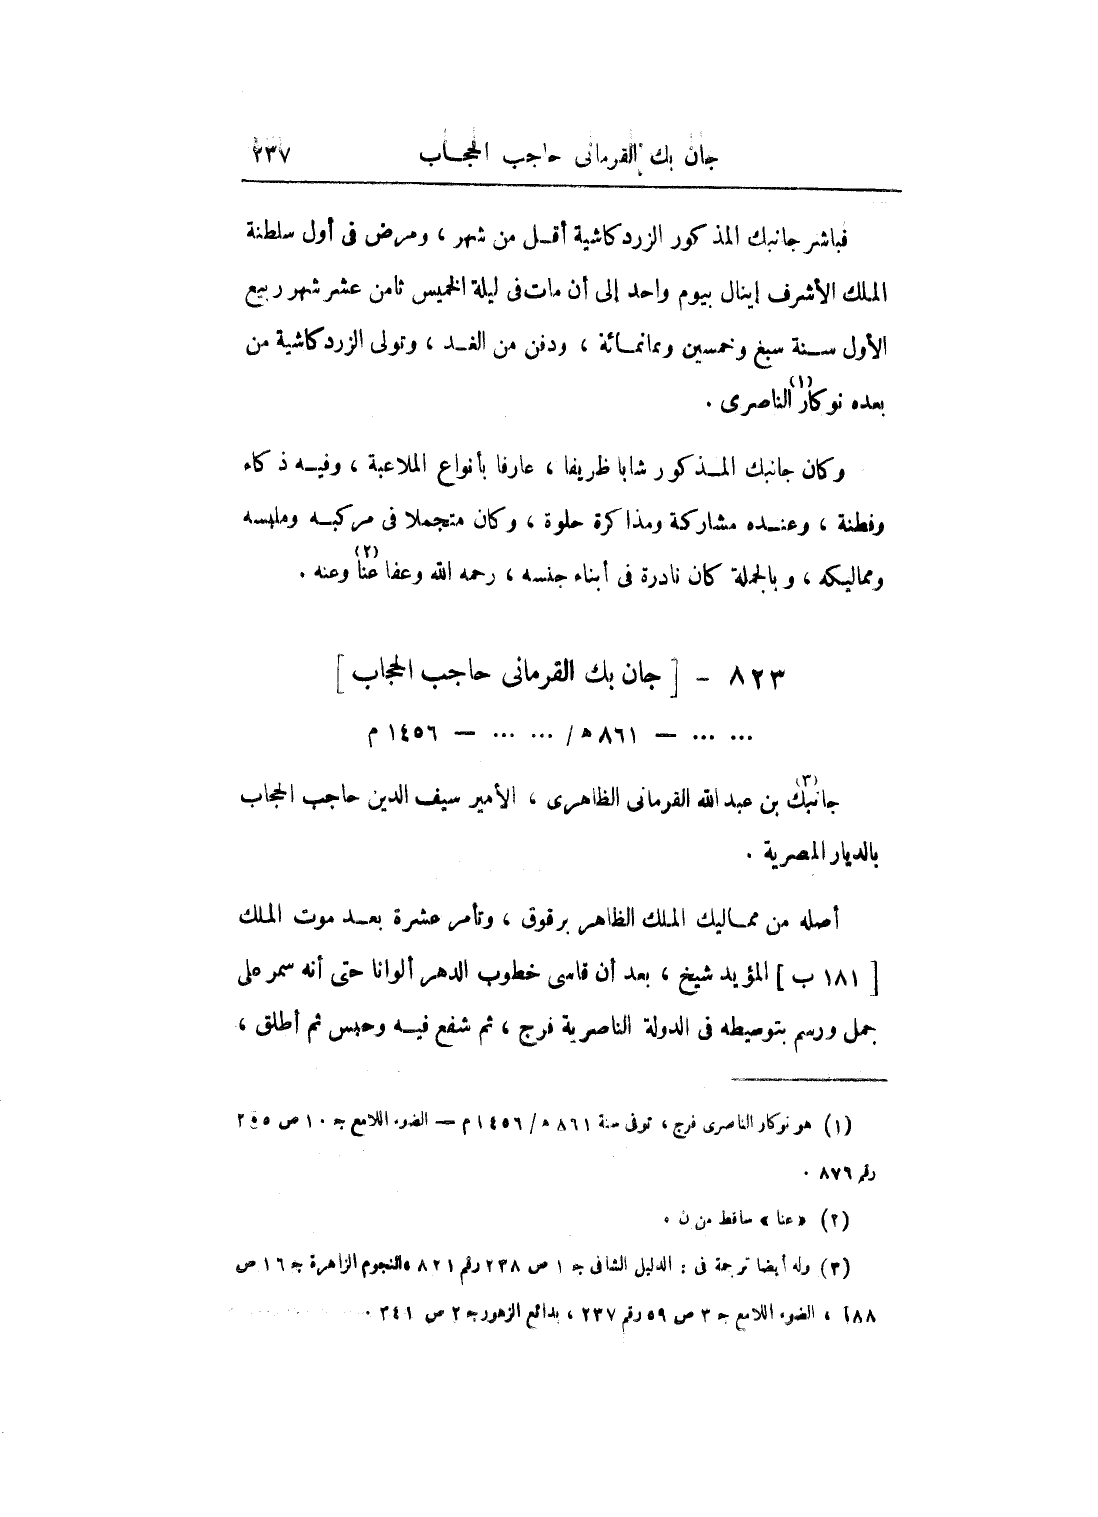 جان بك القرمانى حاجب الحجاب ٢٣٧
فباشر جانبك المذكور الزردكاشية أقل من شهر ، ومرض فى أول سلطنة
الملك الأشرف إينال بيوم واحد إلى أن مات فى ليلة الخميس ثامن عشر شهر ربيع
الأول سنة سبع وخمسين وثمانمائة ، ودفن من الغد ، وتولى الزردكاشية من
بعده نوكار(١) الناصرى .
وكان جانبك المذكور شابا ظريفا ، عارفا بأنواع الملاعبة ، وفيه ذكاء
وفطنة ، وعنده مشاركة ومذاكرة حلوة ، وكان متجملا فى مركبه وملبسه
ومماليكه ، وبالجملة كان نادرة فى أبناء جنسه ، رحمه الله وعفا عنا(٢) وعنه .
٨٢٣ - [ جان بك القرمانى حاجب الحجاب ]
... ... — ٨٦١ ه / ... ... — ١٤٥٦ م
جانبك(٣) بن عبد الله القرمانى الظاهرى ، الأمير سيف الدين حاجب الحجاب
بالديار المصرية .
أصله من مماليك الملك الظاهر برقوق ، وتأمر عشرة بعد موت الملك
[ ١٨١ ب ] المؤيد شيخ ، بعد أن قاسى خطوب الدهر ألوانا حتى أنه سمر على
جمل ورسم بتوصيطه فى الدولة الناصرية فرج ، ثم شفع فيه وحبس ثم أطلق ،
(١) هو نوكار الناصرى فرج ، توفى سنة ٨٦١ ه / ١٤٥٦ م — الضوء اللامع ج ١٠ ص
رقم ٨٧٦ .
(٢) « عنا » ساقط من ن .
(٣) وله أيضا ترجمة فى : الدليل الشافى ج ١ ص ٢٣٨ رقم ٨٢١ ، النجوم الزاهرة ج ١٦ ص
، الضوء اللامع ج ٣ ص ٥٩ رقم ٢٣٧ ، بدائع الزهور ج ٢ ص ٣٤١ .